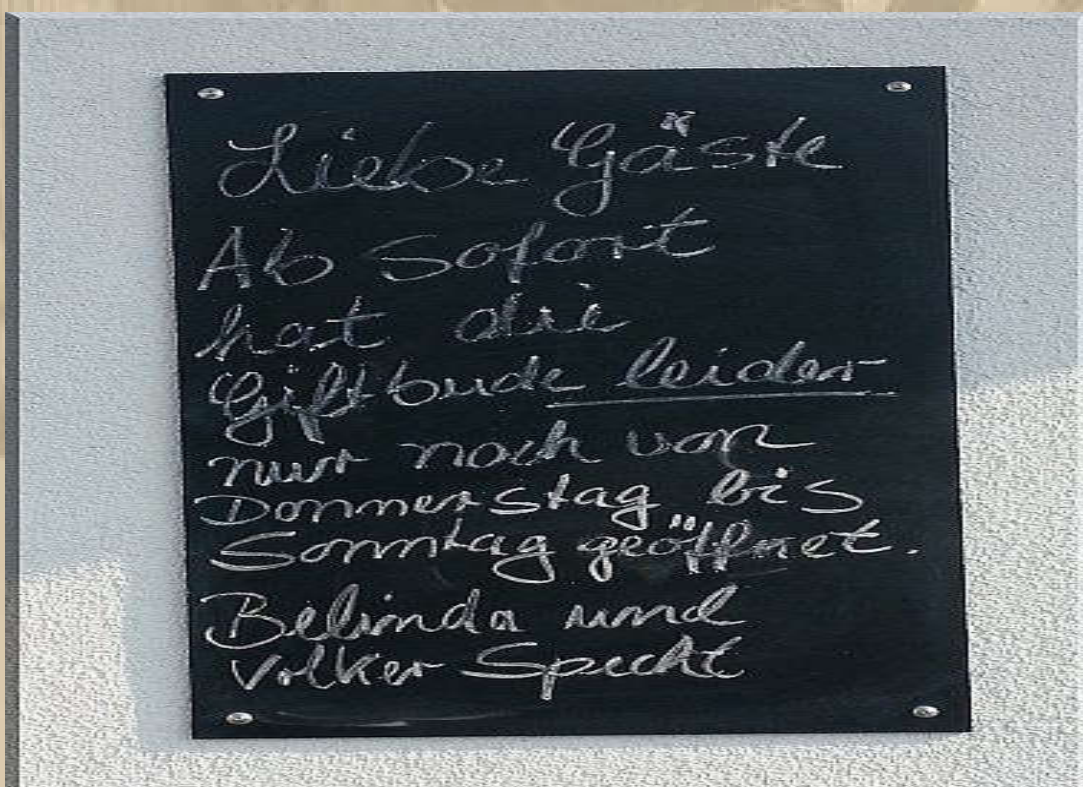 Liebe Gäste
Ab Sofort
hat die
Giftbude leider
nur noch von
Donnerstag bis
Sonntag geöffnet.
Belinda und
Volker Specht